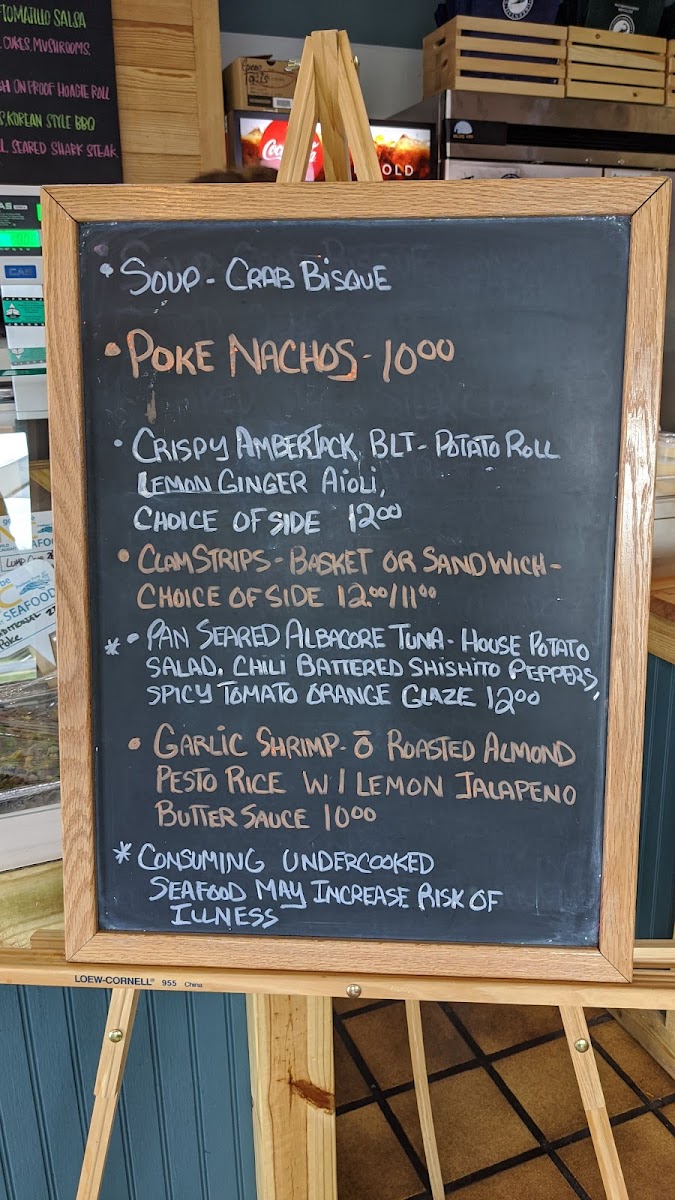 TOMATILLO SALSA
CUKES, MUSHROOMS.
ON PROOF HOAGIE ROLL
KOREAN STYLE BBQ
SEARED SHARK STEAK
Coca-Cola
OLD
CAS
• SOUP - CRAB BISQUE
• POKE NACHOS - 10⁰⁰
• CRISPY AMBERJACK BLT - POTATO ROLL
LEMON GINGER AIOLI,
CHOICE OF SIDE 12⁰⁰
• CLAM STRIPS - BASKET OR SANDWICH -
CHOICE OF SIDE 12.⁰⁰/11⁰⁰
* • PAN SEARED ALBACORE TUNA - HOUSE POTATO
SALAD, CHILI BATTERED SHISHITO PEPPERS,
SPICY TOMATO ORANGE GLAZE 12⁰⁰
• GARLIC SHRIMP - Ō ROASTED ALMOND
PESTO RICE W/ LEMON JALAPENO
BUTTER SAUCE 10⁰⁰
* CONSUMING UNDERCOOKED
SEAFOOD MAY INCREASE RISK OF
ILLNESS
LOEW-CORNELL® 955 China
SEAFOOD
Poke